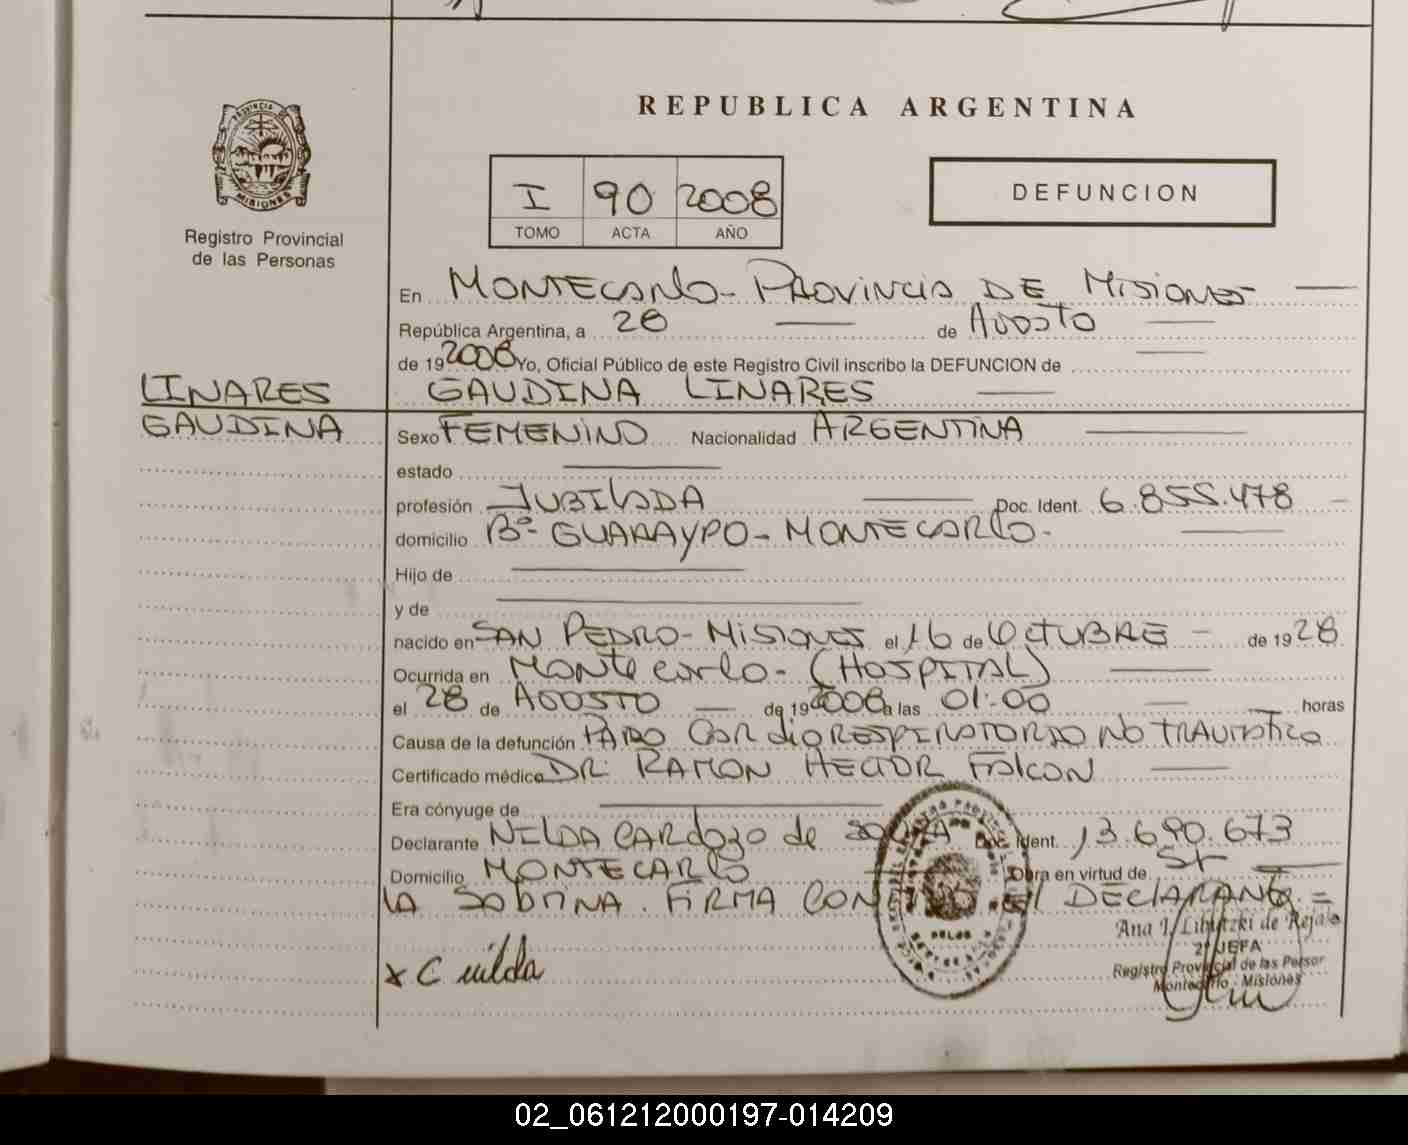 REPUBLICA ARGENTINA
PROVINCIA
MISIONES
Registro Provincial
de las Personas
I 90 2008
TOMO ACTA AÑO
DEFUNCION
En MONTECARLO - PROVINCIA DE MISIONES
República Argentina, a 28 de AGOSTO
de 19 2008 Yo, Oficial Público de este Registro Civil inscribo la DEFUNCION de
LINARES GAUDINA LINARES
GAUDINA Sexo FEMENINO Nacionalidad ARGENTINA
estado
profesión JUBILADA Doc. Ident. 6.855.478
domicilio Bº- GUARAYPO - MONTECARLO -
Hijo de
y de
nacido en SAN PEDRO - MISIONES el 16 de OCTUBRE - de 19 28
Ocurrida en MONTECARLO - (HOSPITAL)
el 28 de AGOSTO de 19 2008 a las 01:00 horas
Causa de la defunción PARO CARDIORESPIRATORIO NO TRAUMATICO
Certificado médico DR. RAMON HECTOR FALCON
Era cónyuge de
Declarante NILDA CARDOZO de SOUZA Doc. Ident. 13.690.673
Domicilio MONTECARLO Obra en virtud de Sr
LA SOBRINA. FIRMA CONMIGO El DECLARANTE =
Ana I. Libutzki de Rejala
2º JEFA
Registro Provincial de las Person
Montecarlo - Misiones
x C nilda
02_061212000197-014209